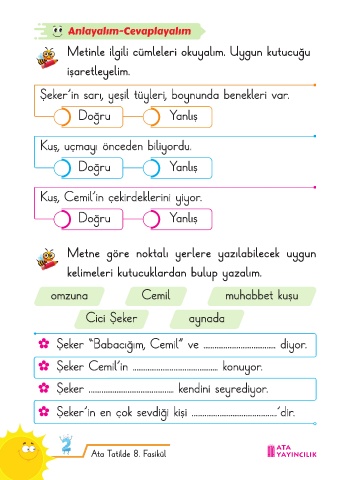 Anlayalım-Cevaplayalım
Metinle ilgili cümleleri okuyalım. Uygun kutucuğu
işaretleyelim.
Şeker'in sarı, yeşil tüyleri, boynunda benekleri var.
Doğru Yanlış
Kuş, uçmayı önceden biliyordu.
Doğru Yanlış
Kuş, Cemil'in çekirdeklerini yiyor.
Doğru Yanlış
Metne göre noktalı yerlere yazılabilecek uygun
kelimeleri kutucuklardan bulup yazalım.
omzuna Cemil muhabbet kuşu
Cici Şeker aynada
Şeker "Babacığım, Cemil" ve ................................ diyor.
Şeker Cemil'in ...................................... konuyor.
Şeker ...................................... kendini seyrediyor.
Şeker'in en çok sevdiği kişi ......................................'dir.
2 Ata Tatilde 8. Fasikül
ATA
YAYINCILIK